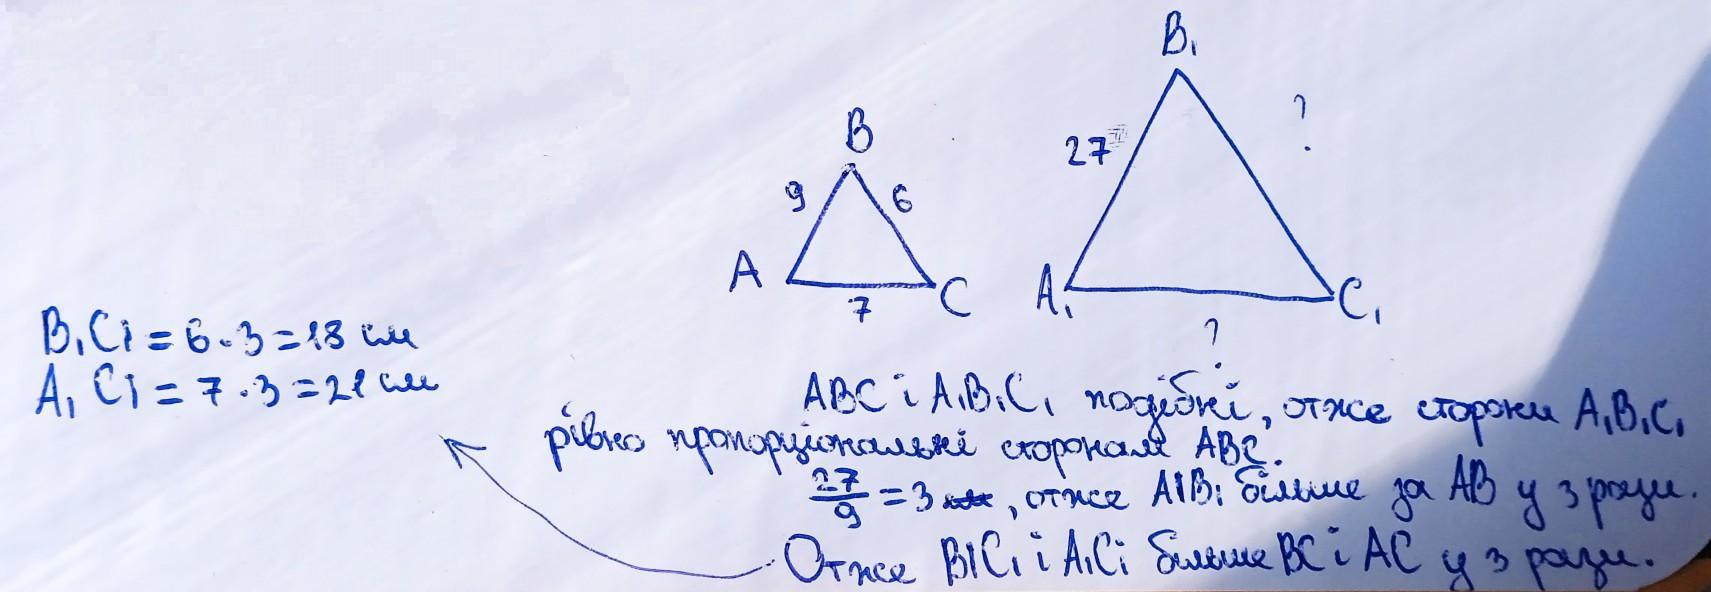 B₁
B
27
?
9
6
A
C
A₁
C₁
7
?
B₁C₁ = 6 · 3 = 18 см
A₁C₁ = 7 · 3 = 21 см
ABC і A₁B₁C₁ подібні, отже сторони A₁B₁C₁
рівно пропорціональні сторонам ABC.
27/9 = 3, отже A₁B₁ більше за AB у 3 рази.
Отже B₁C₁ і A₁C₁ більше BC і AC у 3 рази.